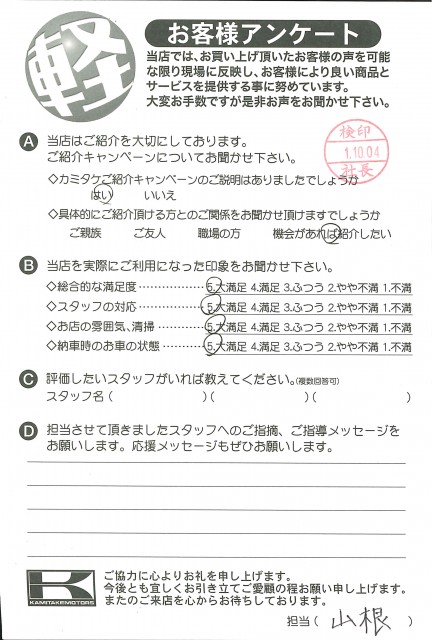 軽
お客様アンケート
当店では、お買い上げ頂いたお客様の声を可能
な限り現場に反映し、お客様により良い商品と
サービスを提供する事に努めています。
大変お手数ですが是非お声をお聞かせ下さい。
検印
1.10.04
社長
A 当店はご紹介を大切にしております。
ご紹介キャンペーンについてお聞かせ下さい。
◇カミタケご紹介キャンペーンのご説明はありましたでしょうか
はい いいえ
◇具体的にご紹介頂ける方とのご関係をお聞かせ頂けますでしょうか
ご親族 ご友人 職場の方 機会があれば紹介したい
B 当店を実際にご利用になった印象をお聞かせ下さい。
◇総合的な満足度………………5.大満足 4.満足 3.ふつう 2.やや不満 1.不満
◇スタッフの対応………………5.大満足 4.満足 3.ふつう 2.やや不満 1.不満
◇お店の雰囲気、清掃…………5.大満足 4.満足 3.ふつう 2.やや不満 1.不満
◇納車時のお車の状態…………5.大満足 4.満足 3.ふつう 2.やや不満 1.不満
C 評価したいスタッフがいれば教えてください。(複数回答可)
スタッフ名( )( )( )
D 担当させて頂きましたスタッフへのご指摘、ご指導メッセージを
お願いします。応援メッセージもぜひお願いします。
K
KAMITAKEMOTORS
ご協力に心よりお礼を申し上げます。
今後とも宜しくお引き立てご愛顧の程お願い申し上げます。
またのご来店を心からお待ちしております。
担当( 山根 )